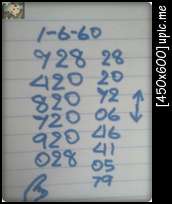 1-6-60
928 28
420 20
820 72
720 06
920 46
028 41
05
79
[450x600] upic.me